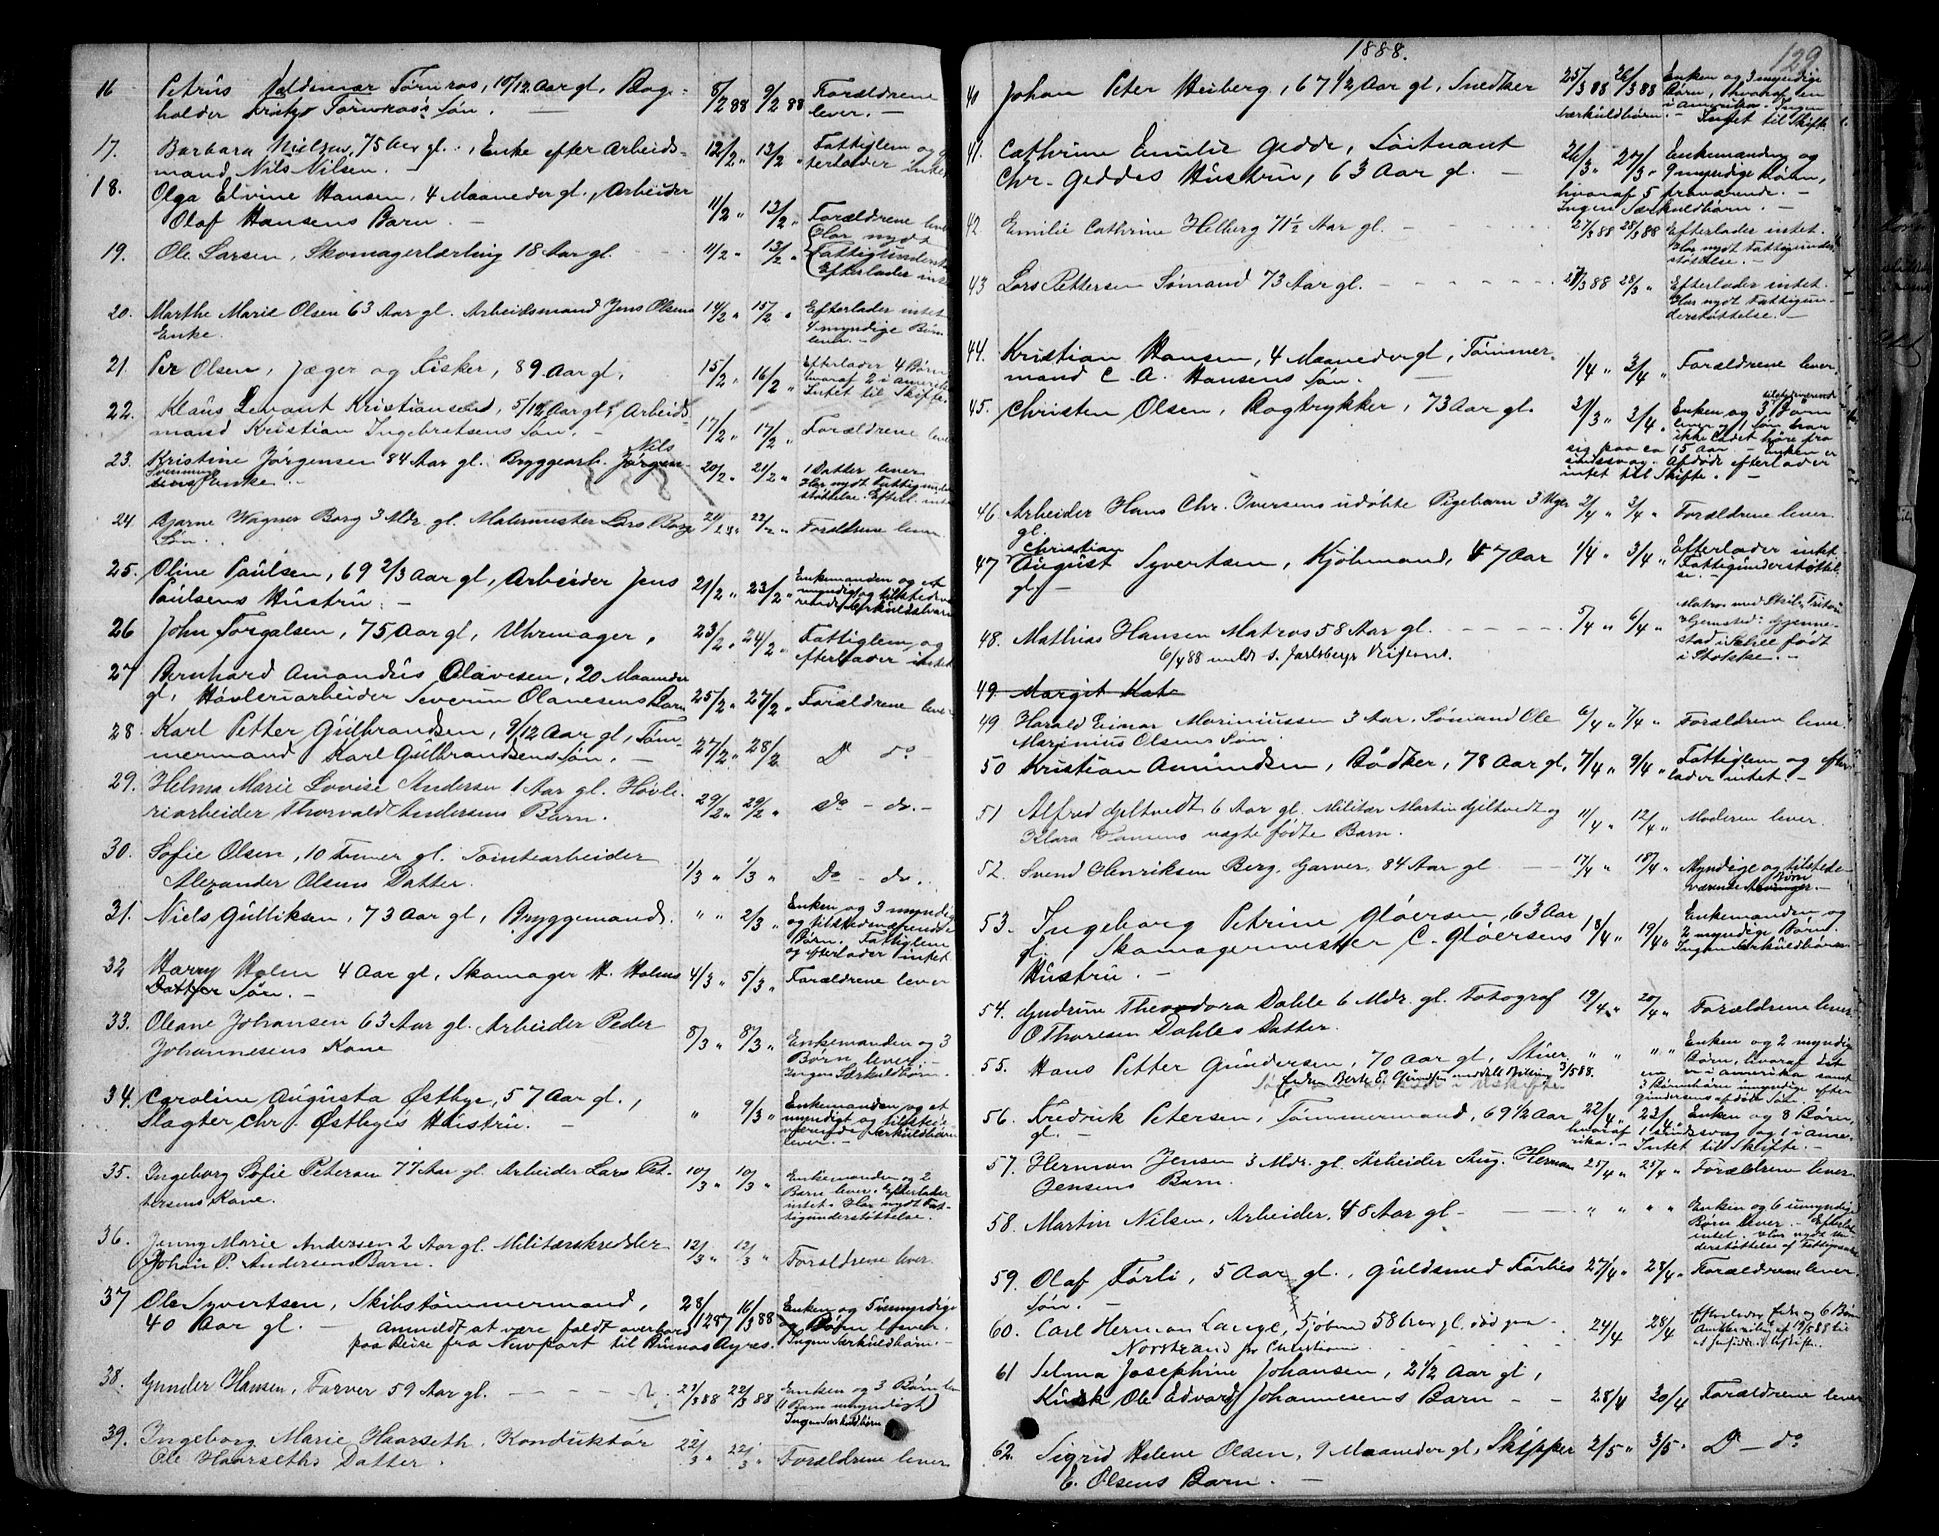 16 Petrus Valdemar Törnros, 10/12 Aar gl, Bog- 8/2 88 9/2 88 Forældrene
holder Fritz Törnros's Søn. — lever. —
17. Barbara Nielsen, 75 Aar gl., Enke efter Arbeids- 12/2 " 13/2 " Fattiglem og
mand Nils Nilsen.
18. Olga Elvine Hansen, 4 Maaneder gl., Arbeider 11/2 " 13/2 " Forældrene
Olaf Hansens Barn. —
19. Ole Larsen, Skomagerlærling 18 Aar gl. 11/2 " 13/2 " Har nydt
Efterlader
20. Marthe Marie Olsen 63 Aar gl. Arbeidsmand Jens Olsens 14/2 " 15/2 " Efterlader intet
Enke. 4 myndige Børn
lever. —
21. Per Olsen, Jæger og Fisker, 89 Aar gl, 15/2 " 16/2 " Efterlader 4 Børn
hvoraf 2 i
Intet til Skifte.
22. Klaus Levant Kristiansen, 5/12 Aar gl, Arbeids- 17/2 " 17/2 " Forældrene lever
mand Kristian Ingebretsens Søn. —
23. Kristine Jørgensen 84 Aar gl. Bryggearb. Nils Jørgen 20/2 " 21/2 " 1 Datter lever
Enke. — Har nydt
støttelse.
24 Bjarne Wagner Borg 3 Mdr. gl. Malermester Lars Borg 21/2 " 22/2 " Forældrene lever
Søn.
25. Oline Paulsen, 69 2/3 Aar gl, Arbeider Jens 21/2 " 23/2 " Enkemanden og et
Paulsens Hustru. — myndig og
26 John Torgalsen, 75 Aar gl, Uhrmager. 23/2 " 24/2 " Fattiglem, og
efterlader intet
27 Bernhard Amandus Olavesen, 20 Maaneder
gl, Høvleriarbeider Severin Olavesens Barn 25/2 " 27/2 " Forældrene lever
28. Karl Petter Gulbrandsen, 9/12 Aar gl, Töm- 27/2 " 28/2 D do —
mermand Karl Gulbrandsens Søn. —
29. Helma Marie Lovise Andersen 1 Aar gl. Høvle- 29/2 " 29/2 " Do – do. –
riarbeider Thorvald Andersens Barn.
30. Sofie Olsen, 10 Timer gl. Tomtearbeider 1/3 " 1/3 " Do – do.
Alexander Olsens Datter.
31. Niels Gulliksen, 73 Aar gl, Bryggemand. " " 2/3 " Enken og 3 myndige
og tilstedeværende
Børn. Fattiglem
og efterlader intet
32 Harry Holm 4 Aar gl, Skomager H. Holms 4/3 " 5/3 " Forældrene lever
Datter Søn. —
33. Oleane Johansen 63 Aar gl. Arbeider Peder 8/3 " 8/3 " Enkemanden og 3
Johannesens Kone Børn lever. —
Ingen Særkuldbørn.
34. Caroline Augusta Østbye, 57 Aar gl., " 9/3 " Enkemanden og et
Slagter Chr. Østbyes Hustru. — myndigt og
lever. —
35. Ingeborg Sofie Petersen 77 Aar gl. Arbeider Lars Pet- 10/3 " 10/3 " Enkemanden og 2
tersens Kone. Børn lever. Efterlader
intet. Har nydt Fat-
tigunderstøttelse.
36. Jenny Marie Andersen 2 Aar gl. Militærskredder 12/3 " 12/3 " Forældrene lever.
Johan P. Andersens Barn.
37 Ole Syvertsen, Skibstømmermand, 28/12 87 16/3 88 Enken og
40 Aar gl. — Anmeldt at være faldt overbord Børn lever.
paa Reise fra Newport til Buenos Ayres. Ingen Særkuldbørn. —
38. Gunder Hansen, Farver 59 Aar gl. — — — 21/3 88 22/3 88 Enken og 3 Børn
(1 Barn umyndigt)
Ingen Særkuldbørn
39. Ingeborg Marie Haarseth, Konduktör 22/3 " 22/3 " Forældrene lever
Ole Haarseths Datter.
1888. 129
40 Johan Peter Heiberg, 67 1/2 Aar gl, Snedker 25/3 88 26/3 88 Enken og 3 myndige
Børn, hvoraf en
i Amerika. Ingen
Særkuldbørn. — Intet til Skifte.
41. Cathrine Emilie Gedde, Löitnant 26/3 " 27/3 " Enkemanden og
Chr. Geddes Hustru, 63 Aar gl. — 9 myndige Børn,
hvoraf 5 fraværende. —
Ingen Særkuldbørn. —
42 Emilie Cathrine Helberg 71 1/2 Aar gl. — — 27/3 88 28/3 88 Efterlader intet.
Har nydt Fattigunder-
støttelse. —
43 Lars Pettersen Sømand 73 Aar gl. — — — 27/3 88 28/3 " Efterlader intet.
Har nydt Fattigun-
derstøttelse. —
44. Kristian Hansen, 4 Maaneder gl, Tömmer- 1/4 " 3/4 " Forældrene lever.
mand C. A. Hansens Søn. —
45. Christen Olsen, Bogtrykker, 73 Aar gl. 31/3 " 3/4 " Enken og 3 tilstedeværende Børn
lever og 1 Søn har
ikke ladet høre fra
sig paa ca 15 Aar. Enken er
sindssvag. Afdøde efterlader
intet til Skifte. —
46. Arbeider Hans Chr. Iversens udøbte Pigebarn 3 Uger 2/4 " 3/4 " Forældrene lever.
gl.
47 Christian August Syvertsen, Kjøbmand, 47 Aar 1/4 " 3/4 " Efterlader intet.
gl. Fattigunderstøttel-
se. —
48. Mathias Hansen Matros 58 Aar gl. — — — 5/4 " 6/4 " Matros med Skib
Hjemsted: Gjenne-
stad i Stokke født
6/4 88 meldt s. Jarlsbergs Skifteret. i Stokke. —
49. Margit Kat
49 Harald Einar Mariniussen 3 Aar. Sømand Ole 6/4 " 7/4 " Forældrene lever.
Marinius Olsens Søn.
50 Kristian Amundsen, Bødker, 78 Aar gl, 7/4 " 9/4 " Fattiglem og efter-
lader intet. —
51 Alfred Gjeltvedt 6 Aar gl, Militær Martin Gjeltvedt og 11/4 " 12/4 " Moderen lever.
Klara Hansens uægte fødte Barn.
52. Svend Henriksen Berg, Garver, 84 Aar gl — — 17/4 " 18/4 " Myndige og tilstede-
værende Børn
53. Ingeborg Petrine Gløersen, 63 Aar 18/4 " 19/4 " Enkemanden og
gl. Skomagermester C. Gløersens 2 myndige Børn.
Hustru. — Ingen Særkuldbørn.
54. Gudrun Theodora Dahle 6 Mdr. gl. Fotograf 19/4 " 20/4 " Forældrene lever.
O. Thoresen Dahles Datter.
55. Hans Petter Gundersen, 70 Aar gl, Stuer. " " " " Enken og 2 myndige
Børn, hvoraf det
ene er i Amerika samt
3 Børnebørn umyndige efter
Gundersens afdøde Søn.
56. Fredrik Petersen, Tömmermand, 69 1/2 Aar 22/4 " 23/4 " Enken og 8 Børn,
gl. — hvoraf 1 sindssvag og 1 i Ame-
rika. — Intet til Skifte. —
57. Herman Jensen 3 Mdr. gl. Arbeider Aug. Herman 25/4 " 25/4 " Forældrene lever
Jensens Barn.
58. Martin Nilsen, Arbeider, 48 Aar gl. — " " " " Enken og 6 umyndige
Børn lever. Efterl.
intet. Har nydt Un-
derstøttelse af
59. Olaf Förli, 5 Aar gl., Guldsmed Förlies 27/4 " 28/4 " Forældrene lever.
Søn. —
60. Carl Herman Lange, Sjømand 58 Aar gl. død paa 24/4 28/4 Efterlader Enke og 6 Børn
Norstrand pr Christiania
61 Selma Josephine Johansen, 2 1/2 Aar gl,
Kusk Ole Edvard Johannesens Barn — — 28/4 30/4 Forældrene lever
62. Sigrid Helene Olsen, 9 Maaneder gl, Skipper 2/5 " 3/5 " D – do
E. Olsens Barn. —